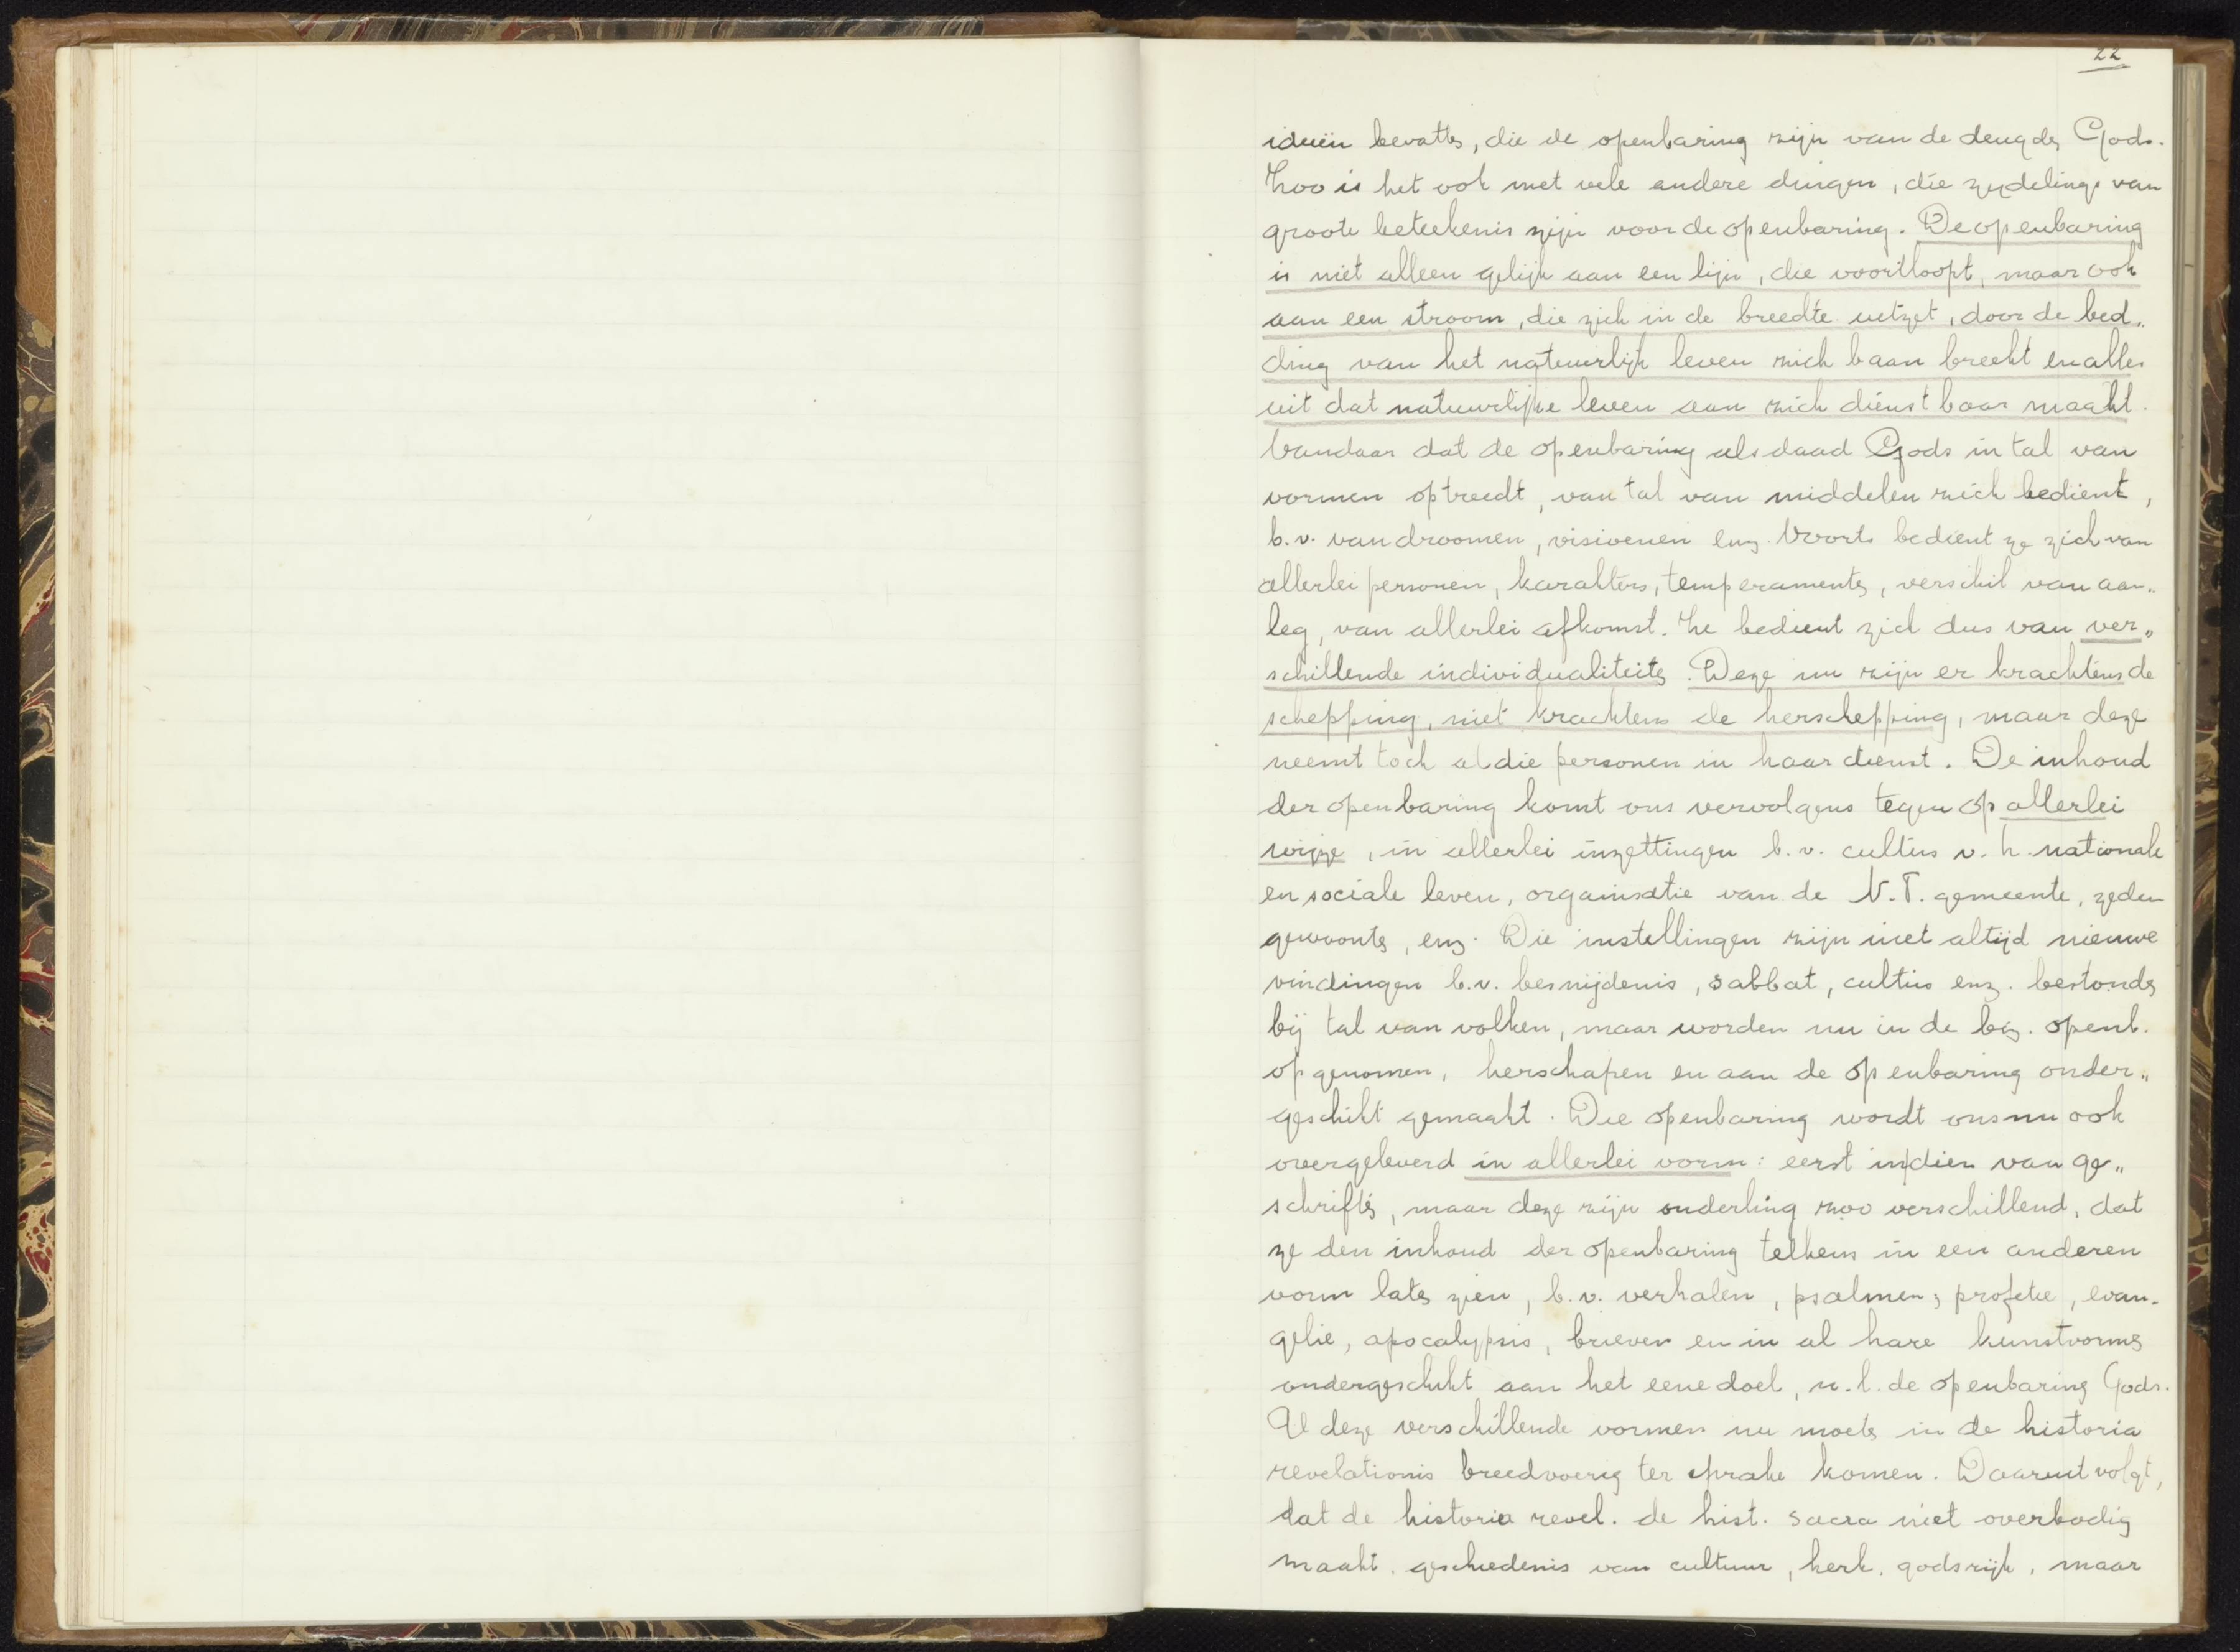 22
ideeën bevatten, die de openbaring zijn van de deugden Gods.
Zoo is het ook met vele andere dingen, die zijdelings van
groote beteekenis zijn voor de openbaring. De openbaring
is niet alleen gelijk aan een lijn, die voortloopt, maar ook
aan een stroom, die zich in de breedte uitzet, door de bed„
ding van het natuurlijk leven zich baan breekt en alles
uit dat natuurlijke leven aan zich dienstbaar maakt.
Vandaar dat de openbaring als daad Gods in tal van
vormen optreedt, van tal van middelen zich bedient,
b.v. van droomen, visioenen enz. Voorts bedient ze zich van
allerlei personen, karakters, temperamenten, verschil van aan„
leg, van allerlei afkomst. Ze bedient zich dus van ver„
schillende individualiteiten. Deze nu zijn er krachtens de
schepping, niet krachtens de herschepping, maar deze
neemt toch al die personen in haar dienst. De inhoud
der openbaring komt ons vervolgens tegen op allerlei
wijze, in allerlei inzettingen b.v. cultus v. h. nationale
en sociale leven, organisatie van de N.T. gemeente, zeden
gewoonten, enz. Die instellingen zijn niet altijd nieuwe
vindingen b.v. besnijdenis, sabbat, cultus enz. bestonden
bij tal van volken, maar worden nu in de biz. openb.
opgenomen, herschapen en aan de openbaring onder„
geschikt gemaakt. Die openbaring wordt ons nu ook
overgeleverd in allerlei vorm: eerst in dien van ge„
schriften, maar deze zijn onderling zoo verschillend, dat
ze den inhoud der openbaring telkens in een anderen
vorm laten zien, b.v. verhalen, psalmen, profetie, evan-
gelie, apocalypsis, brieven en in al hare kunstvormen
ondergeschikt aan het eene doel, n.l. de openbaring Gods.
Al deze verschillende vormen nu moeten in de historia
revelationis breedvoerig ter sprake komen. Daaruit volgt,
dat de historia revel. de hist. sacra niet overbodig
maakt, geschiedenis van cultuur, kerk, godsrijk, maar